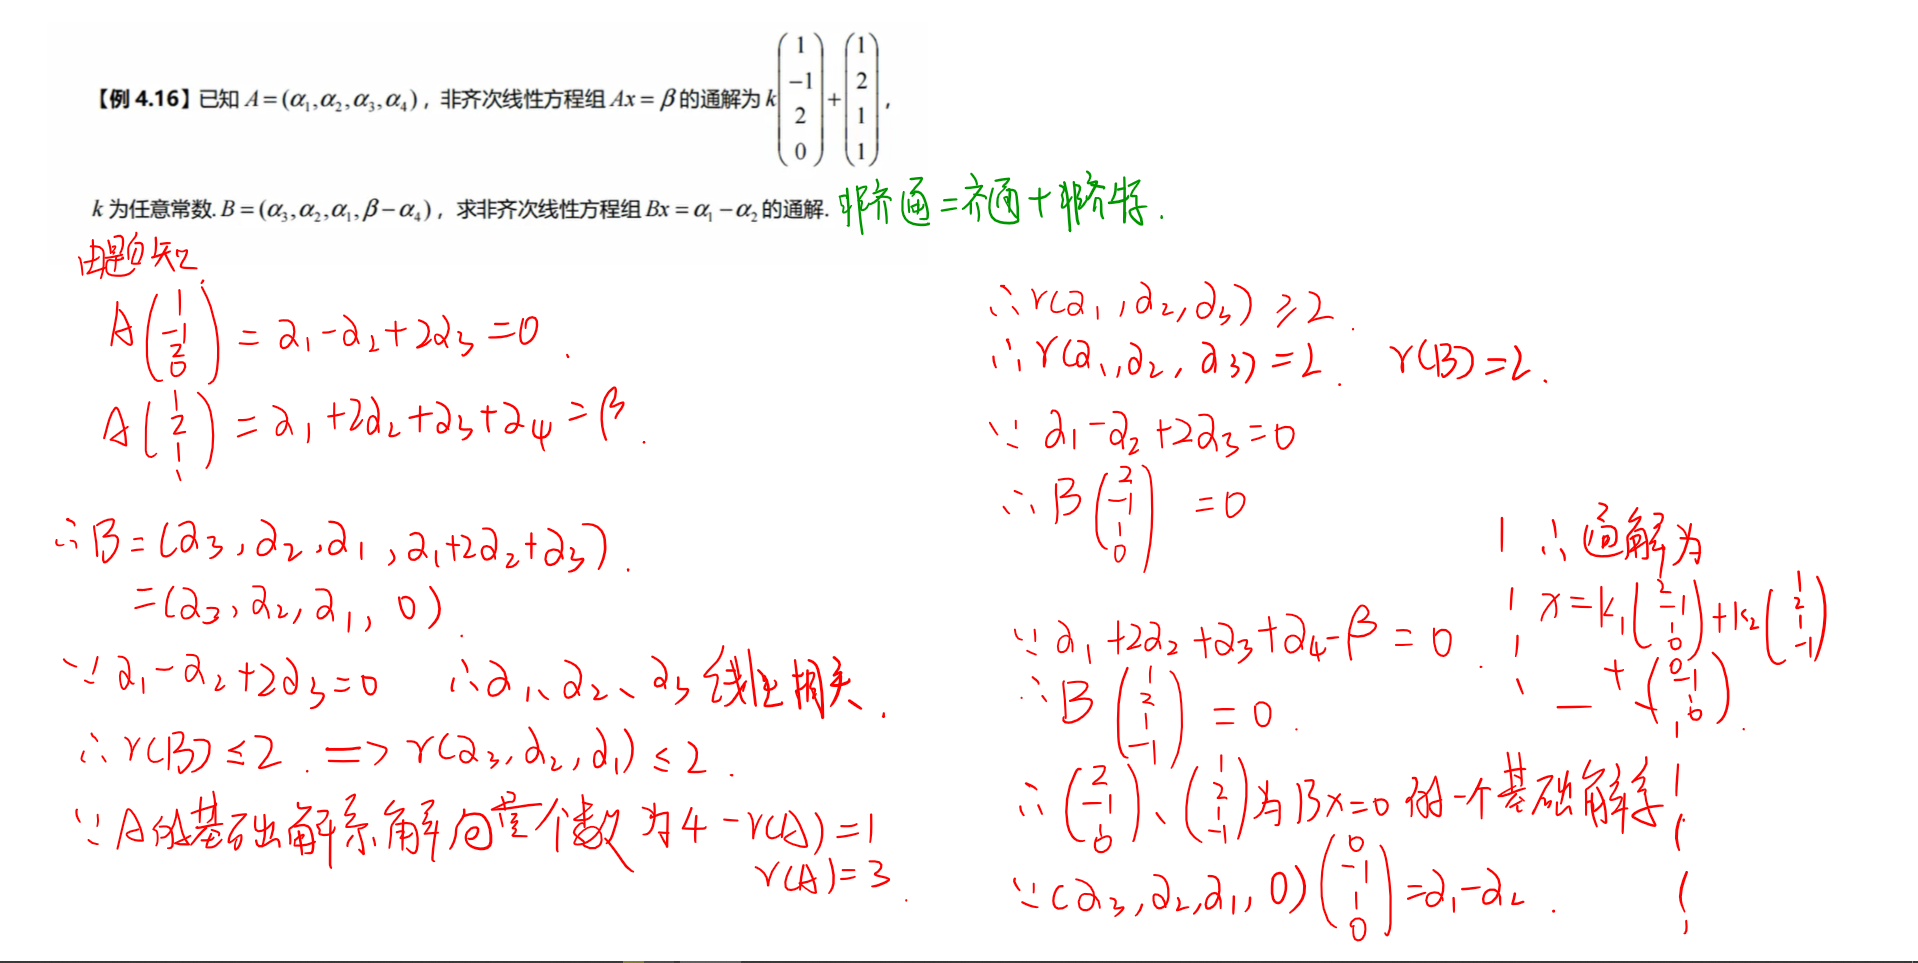 【例 4.16】已知 A=(α₁,α₂,α₃,α₄), 非齐次线性方程组 Ax=β 的通解为 k(1 -1 2 0)+(1 2 1 1),
k 为任意常数. B=(α₃,α₂,α₁,β-α₄), 求非齐次线性方程组 Bx=α₁-α₂ 的通解. 非齐通=齐通+非齐特.
由题知
A(1 -1 2 0) = α₁-α₂+2α₃=0.
A(1 2 1 1) = α₁+2α₂+α₃+α₄=β.
∴B=(α₃,α₂,α₁,α₁+2α₂+α₃).
=(α₃,α₂,α₁,0).
∵α₁-α₂+2α₃=0 ∴α₁、α₂、α₃线性相关.
∴r(B)≤2. => r(α₃,α₂,α₁)≤2.
∵A的基础解系解向量个数为4-r(A)=1
r(A)=3.
∴r(α₁,α₂,α₃)≥2.
∴r(α₁,α₂,α₃)=2. r(B)=2.
∵α₁-α₂+2α₃=0
∴B(2 -1 1 0)=0
∵α₁+2α₂+α₃+α₄-β=0.
∴B(1 2 1 -1)=0.
∴(2 -1 1 0)、(1 2 1 -1)为Bx=0的一个基础解系
∵(α₃,α₂,α₁,0)(0 -1 1 0)=α₁-α₂.
∴通解为
x=k₁(2 -1 1 0)+k₂(1 2 1 -1)
+(0 -1 1 0).